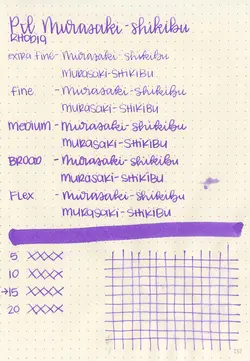 Pil Murasaki-shikibu
RHODIA
extra fine - Murasaki-shikibu
MURASAKI-SHIKIBU
fine - Murasaki-shikibu
MURASAKI-SHIKIBU
Medium - Murasaki-shikibu
MURASAKI-SHIKIBU
BROAD - Murasaki-shikibu
MURASAKI-SHIKIBU
FLEX - Murasaki-shikibu
MURASAKI-SHIKIBU
5 XXXX
10 XXXX
→15 XXXX
20 XXXX